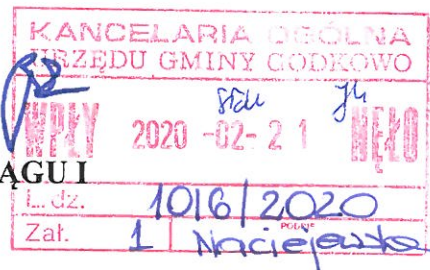 KANCELARIA OGÓLNA
URZĘDU GMINY GODKOWO
WPŁY 2020 -02- 21 NĘŁO
ĄGU I
L. dz. 1016/2020
Zał. 1 PODPIS Naciejewska